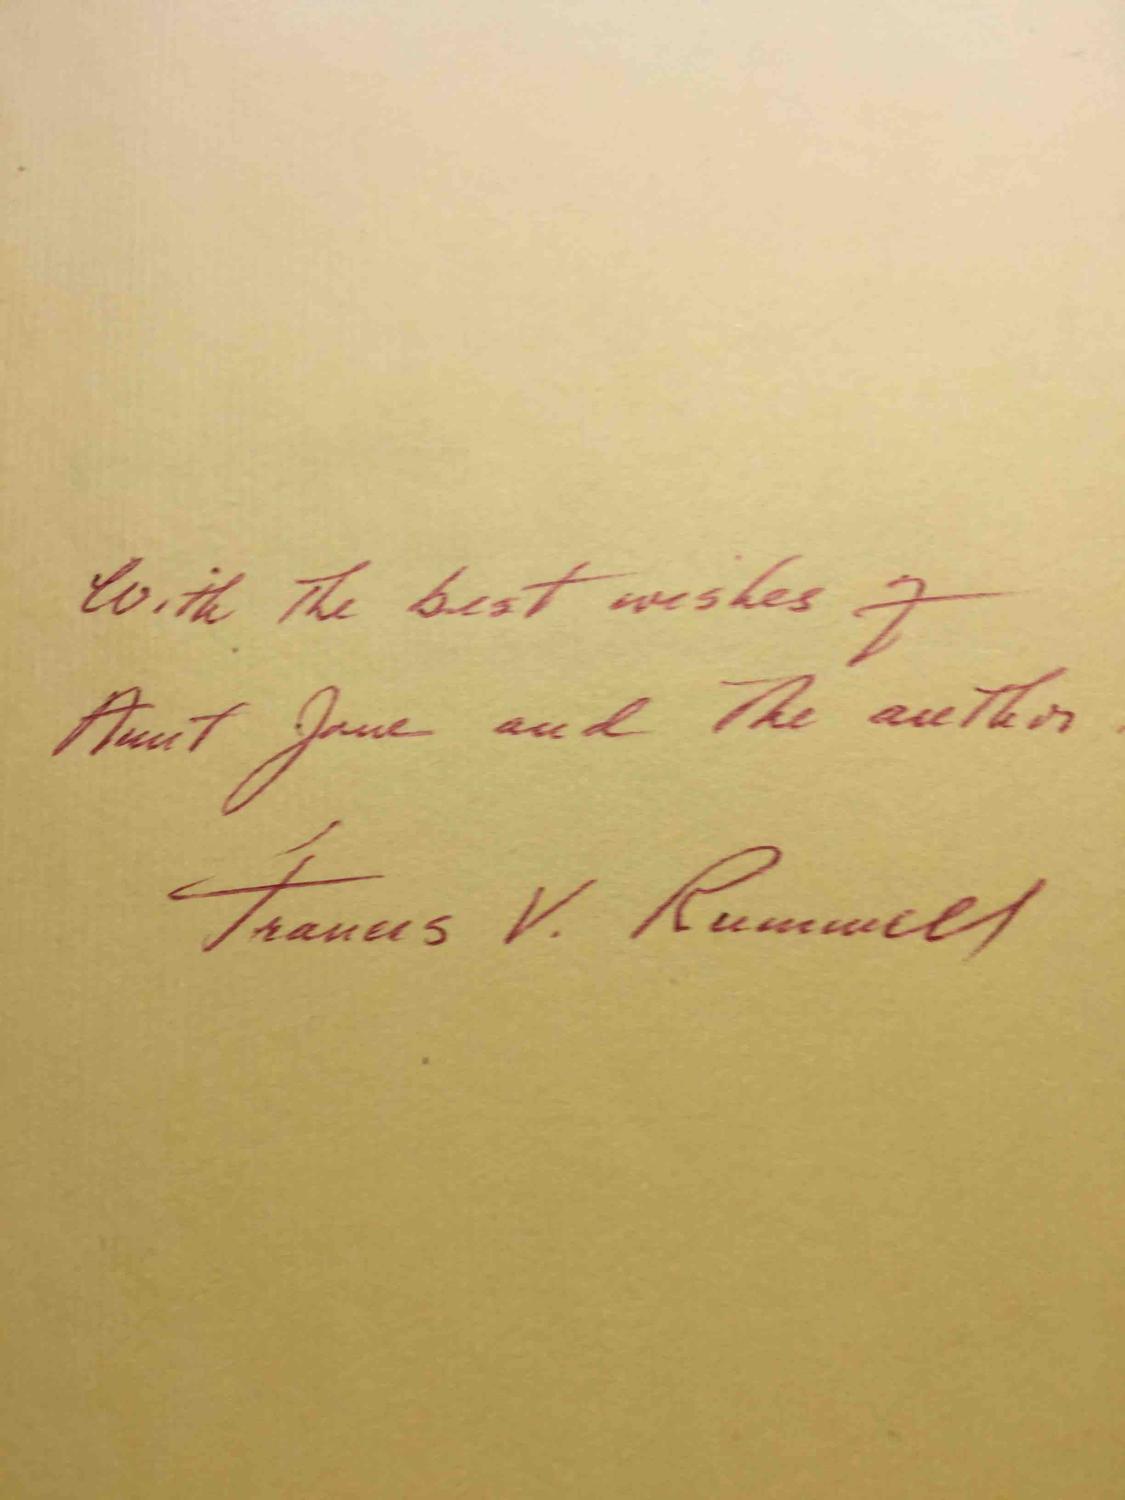 With the best wishes of
Aunt Jane and the author.
Francis V. Rummell